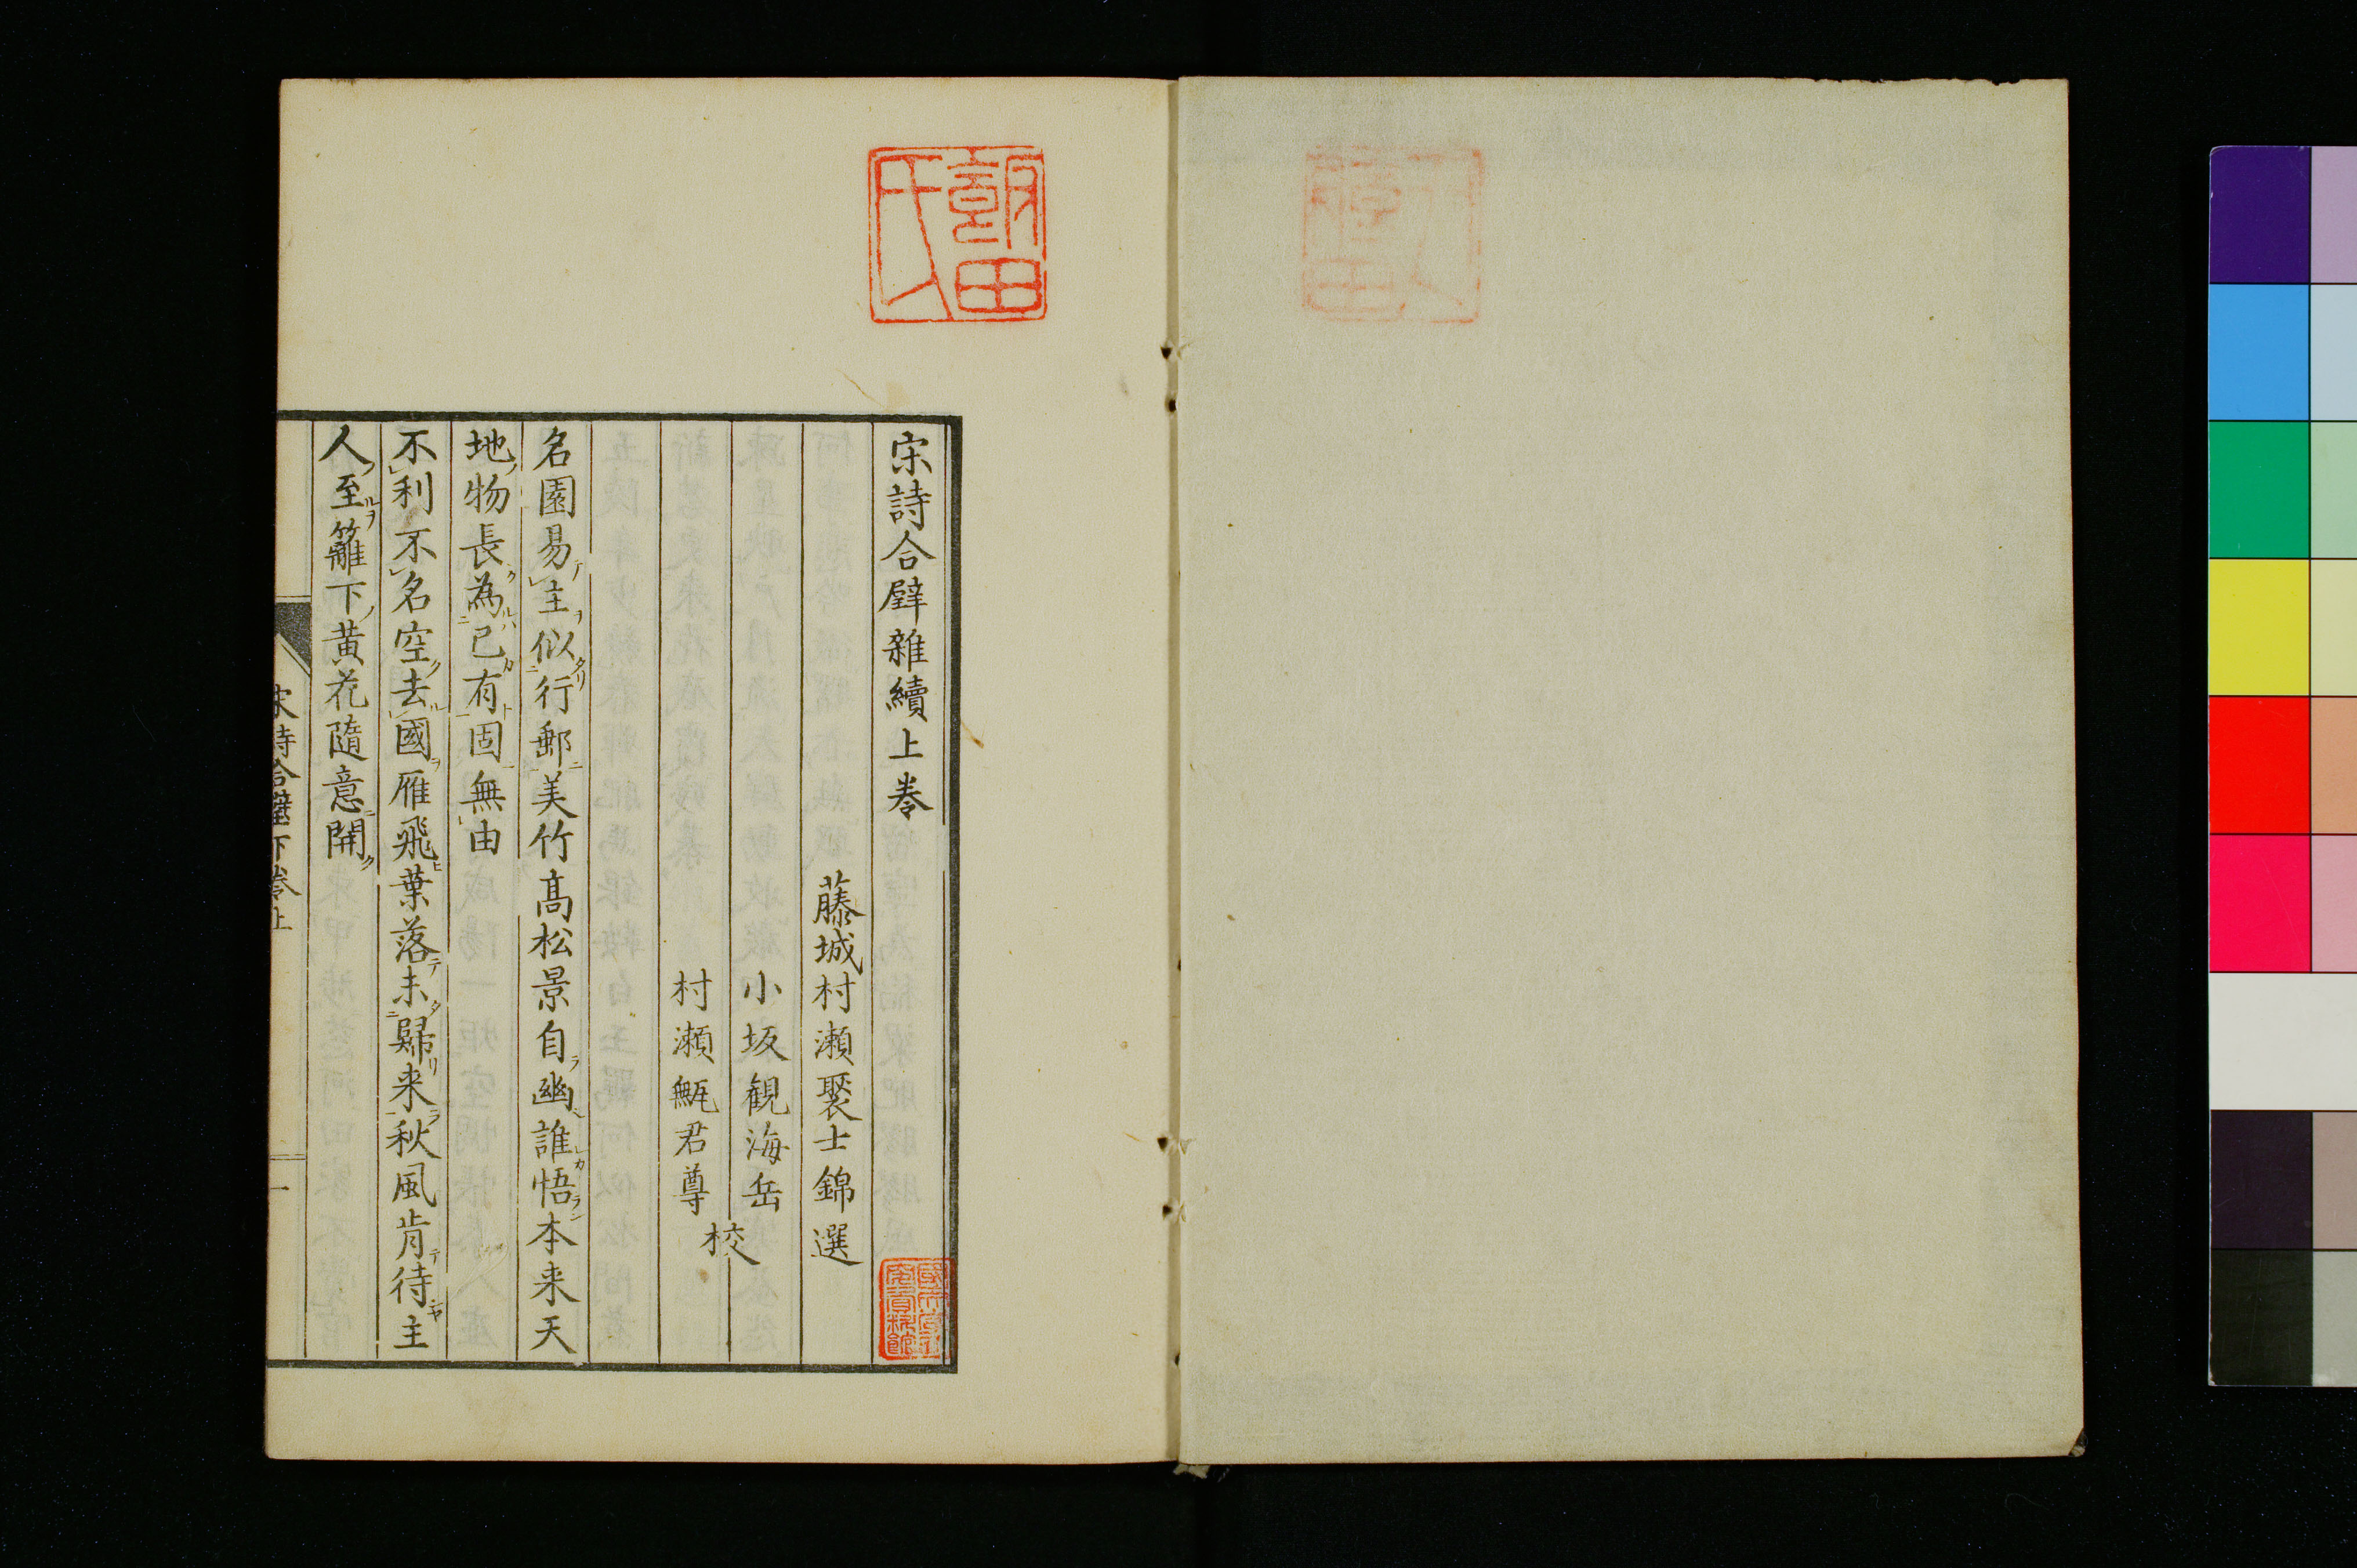 宋詩合璧雜續上巻
藤城村瀬褧士錦選
小坂観海岳
村瀬甒君尊
校
名園易主似行郵美竹髙松景自幽誰悟本来天
地物長為已有固無由
不利不名空去國雁飛葉落未歸来秋風肯待主
人至籬下黄花隨意開
宋詩合璧下巻上
一